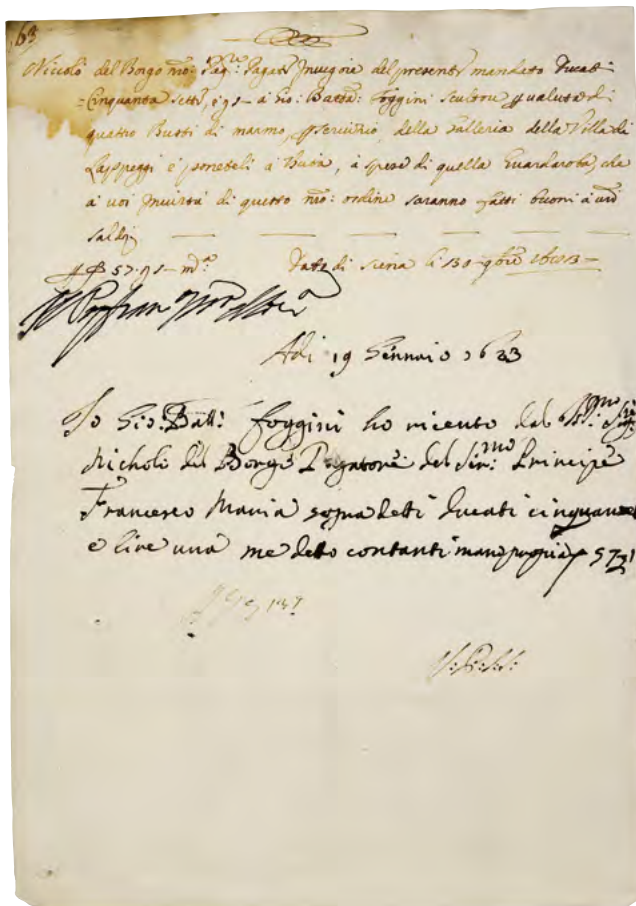 63
Niccolò del Borgo nro: Pagre: Pagate Invigore del presente mandato Ducati
Cinquanta sette, e y 1 – a Gio: Batta: Foggini Scultore p valuta di
quattro Busti di marmo, p servizio della Galleria della Villa di
Lappeggi e poneteli a Uscita, à spese di quella Guardaroba, che
a voi Invirtù di questo nro: ordine saranno fatti buoni à
saldi
57. y 1 – Data di Siena li 30 9bre 1683
Adi 19 Gennaio 1683
Io Gio: Batt: Foggini ho riceuto dal
Nicholò del Borgo Pagatore del Sermo: Principe
Francesco Maria sopra detti ducati cinquan
e lire una me detto contanti mano propria 57 1